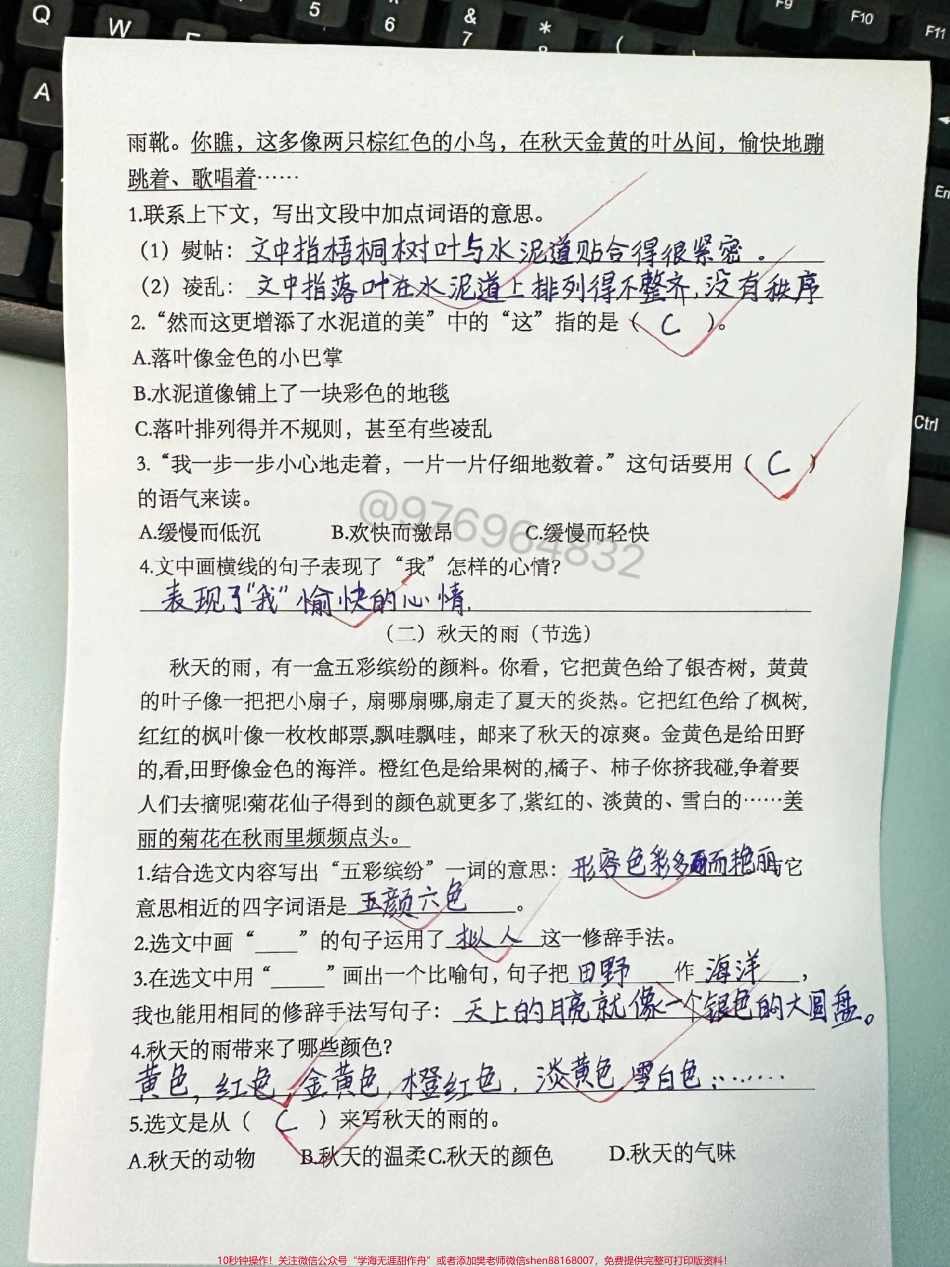 Q W E 5 6 & 7 * 8 ( ) F9 F10 F11
A
En
Ctrl
雨靴。你瞧，这多像两只棕红色的小鸟，在秋天金黄的叶丛间，愉快地蹦
跳着、歌唱着……
1.联系上下文，写出文段中加点词语的意思。
（1）熨帖：文中指梧桐树叶与水泥道贴合得很紧密。
（2）凌乱：文中指落叶在水泥道上排列得不整齐,没有秩序
2.“然而这更增添了水泥道的美”中的“这”指的是（ C ）。
A.落叶像金色的小巴掌
B.水泥道像铺上了一块彩色的地毯
C.落叶排列得并不规则，甚至有些凌乱
3.“我一步一步小心地走着，一片一片仔细地数着。”这句话要用（ C ）
的语气来读。
A.缓慢而低沉 B.欢快而激昂 C.缓慢而轻快
@976964832
4.文中画横线的句子表现了“我”怎样的心情？
表现了“我”愉快的心情.
（二）秋天的雨（节选）
秋天的雨，有一盒五彩缤纷的颜料。你看，它把黄色给了银杏树，黄黄
的叶子像一把把小扇子，扇哪扇哪,扇走了夏天的炎热。它把红色给了枫树,
红红的枫叶像一枚枚邮票,飘哇飘哇，邮来了秋天的凉爽。金黄色是给田野
的,看,田野像金色的海洋。橙红色是给果树的,橘子、柿子你挤我碰,争着要
人们去摘呢!菊花仙子得到的颜色就更多了,紫红的、淡黄的、雪白的……美
丽的菊花在秋雨里频频点头。
1.结合选文内容写出“五彩缤纷”一词的意思：形容色彩多而艳丽与它
意思相近的四字词语是 五颜六色 。
2.选文中画“____”的句子运用了 拟人 这一修辞手法。
3.在选文中用“_____”画出一个比喻句，句子把 田野 作 海洋 ，
我也能用相同的修辞手法写句子：天上的月亮就像一个银色的大圆盘。
4.秋天的雨带来了哪些颜色？
黄色,红色,金黄色,橙红色,淡黄色 雪白色……
5.选文是从（ C ）来写秋天的雨的。
A.秋天的动物 B.秋天的温柔C.秋天的颜色 D.秋天的气味
10秒钟操作！关注微信公众号“学海无涯甜作舟”或者添加樊老师微信shen88168007，免费提供完整可打印版资料！